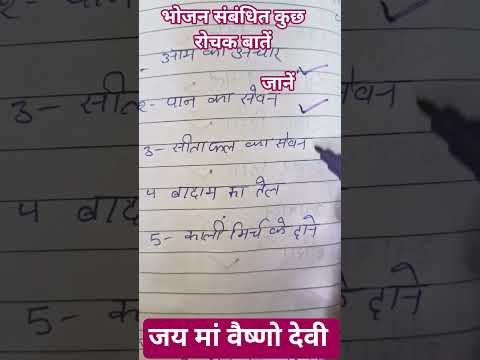 भोजन संबंधित कुछ
रोचक बातें
जानें
- आम का अचार
2- पान का सेवन
3- सीताफल का सेवन
4 बादाम का तेल
5- काली मिर्च के दाने
जय मां वैष्णो देवी